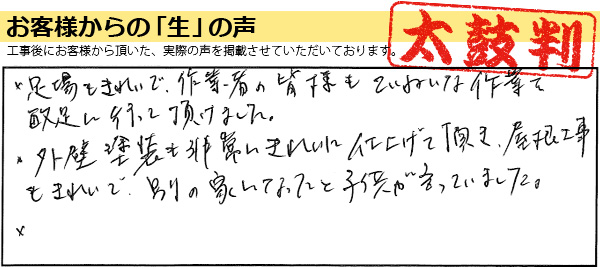 お客様からの「生」の声
工事後にお客様から頂いた、実際の声を掲載させていただいております。
太鼓判
×足場もきれいで、作業者の皆様もていねいな作業を
満足に行って頂けました。
×外壁塗装も非常にきれいに仕上げて頂き、屋根工事
もきれいで、別の家になったと子供が言っていました。
×